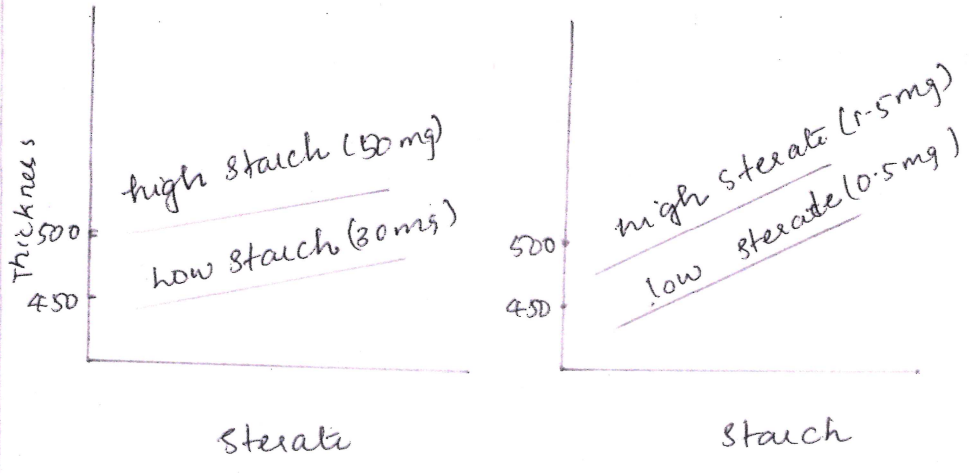 Thickness
500
450
high Starch (50 mg)
Low Starch (30mg)
Sterate
500
450
high Sterate (1.5mg)
low sterate (0.5mg)
Starch